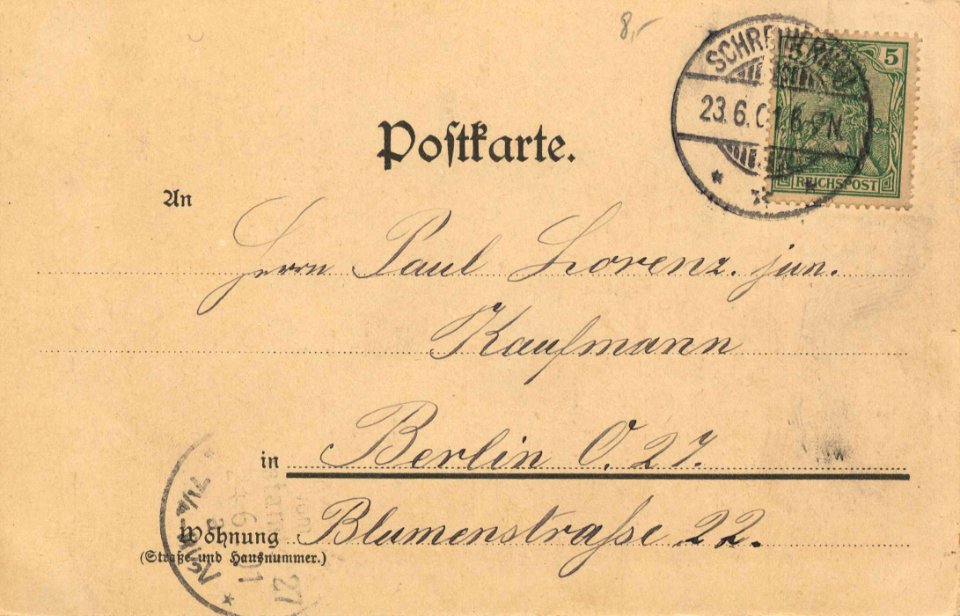 8,-
5
23.6.01. 6-7N.
REICHSPOST
Postkarte.
An
Herrn Paul Lorenz. jun.
Kaufmann
in Berlin O. 27.
Wohnung Blumenstraße 22.
(Straße und Hausnummer.)
27